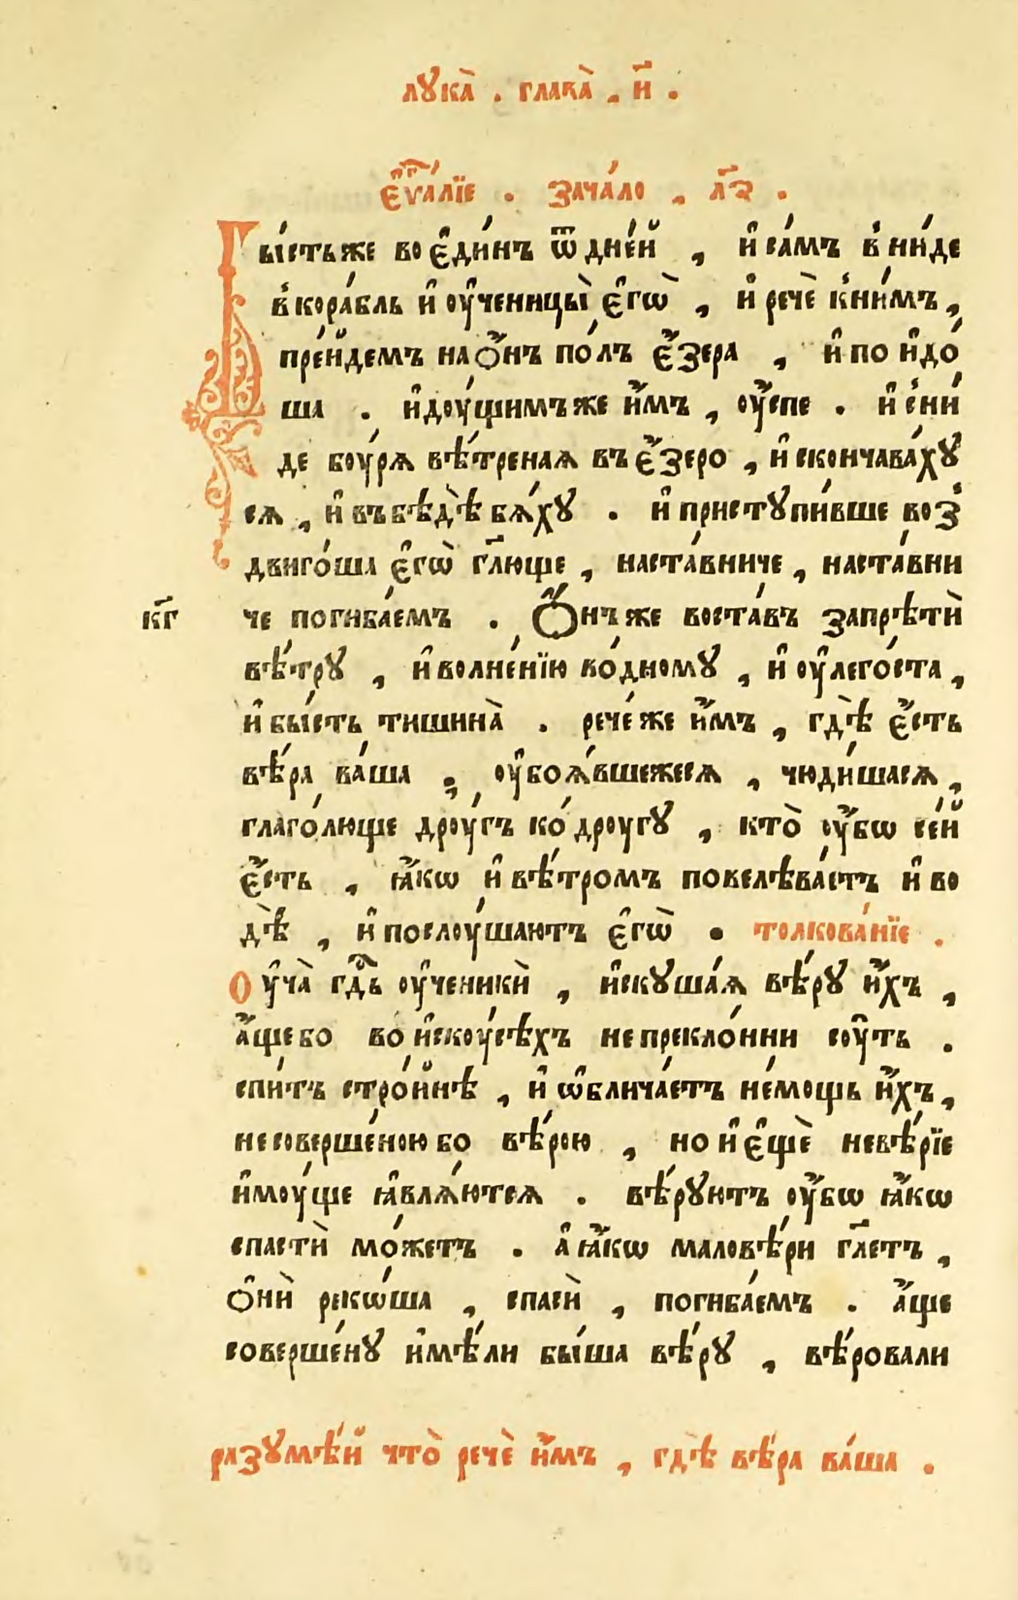 лꙋка̀ . глава̀ , и҃ .
є҆ѵⷢ҇а́лїе . зача́ло , л҃з .
Бы́стьже во є҆ди́нъ ѿ дне́й , и҆ са́мъ в̾ ни́де
в̾кора́бль и҆ оу҆ченицы̀ є҆гѡ̀ , и҆ речѐ к̾ни́мъ ,
пре́йдемъ на ѻ҆́нъ по́лъ є҆́зера , и҆ по и҆до́
ша . и҆доу́щимъже и҆̀мъ , оу҆́спе . и҆ сни́
де боу́рѧ вѣ́тренаѧ въ є҆́зеро , и҆ скончава́хꙋ
сѧ , и҆ въ бѣдѣ̀ бѧ́хꙋ . и҆ пристꙋпи́вше воз̾
двиго́ша є҆гѡ̀ гл҃юще , наста́вниче , наста́вни
к҃г че погиба́емъ . Ѻ҆́нъже воста́въ запрѣтѝ
вѣ́трꙋ , и҆ волне́нїю во́дномꙋ , и҆ оу҆лего́ста ,
и҆ бы́сть тишина̀ . рече́же и҆̀мъ , гдѣ̀ є҆́сть
вѣ́ра ва́ша ; оу҆боѧ́вшежесѧ , чюди́шасѧ ,
глаго́люще дрꙋ́гъ ко́ дрꙋгꙋ , кто̀ оу҆́бѡ се́й
є҆́сть , ꙗ҆́кѡ и҆ вѣ́тромъ повелѣва́етъ и҆ во
дѣ̀ , и҆ послоу́шаютъ є҆гѡ̀ . толкова́нїе .
Оу҆ча̀ гдⷭ҇ь оу҆ченикѝ , и҆скꙋша́ѧ вѣ́рꙋ и҆́хъ ,
а҆́щебо во́ и҆скоу́сѣхъ непрекло́нни соу́ть .
спи́тъ стро́йнѣ , и҆ ѡ҆блича́етъ не́мощь и҆́хъ ,
несоверше́ною бо вѣ́рою , но и҆ є҆щѐ невѣ́рїе
и҆моу́ще ꙗ҆влѧ́ютсѧ . вѣ́рꙋютъ оу҆́бѡ ꙗ҆́кѡ
спастѝ мо́жетъ . а҆ ꙗ҆́кѡ маловѣ́ри гл҃етъ ,
ѻ҆нѝ реко́ша , спасѝ , погиба́емъ . а҆́ще
соверше́нꙋ и҆мѣ́ли бы́ша вѣ́рꙋ , вѣ́ровали
разꙋмѣ́й что̀ речѐ и҆̀мъ , гдѣ̀ вѣ́ра ва́ша .